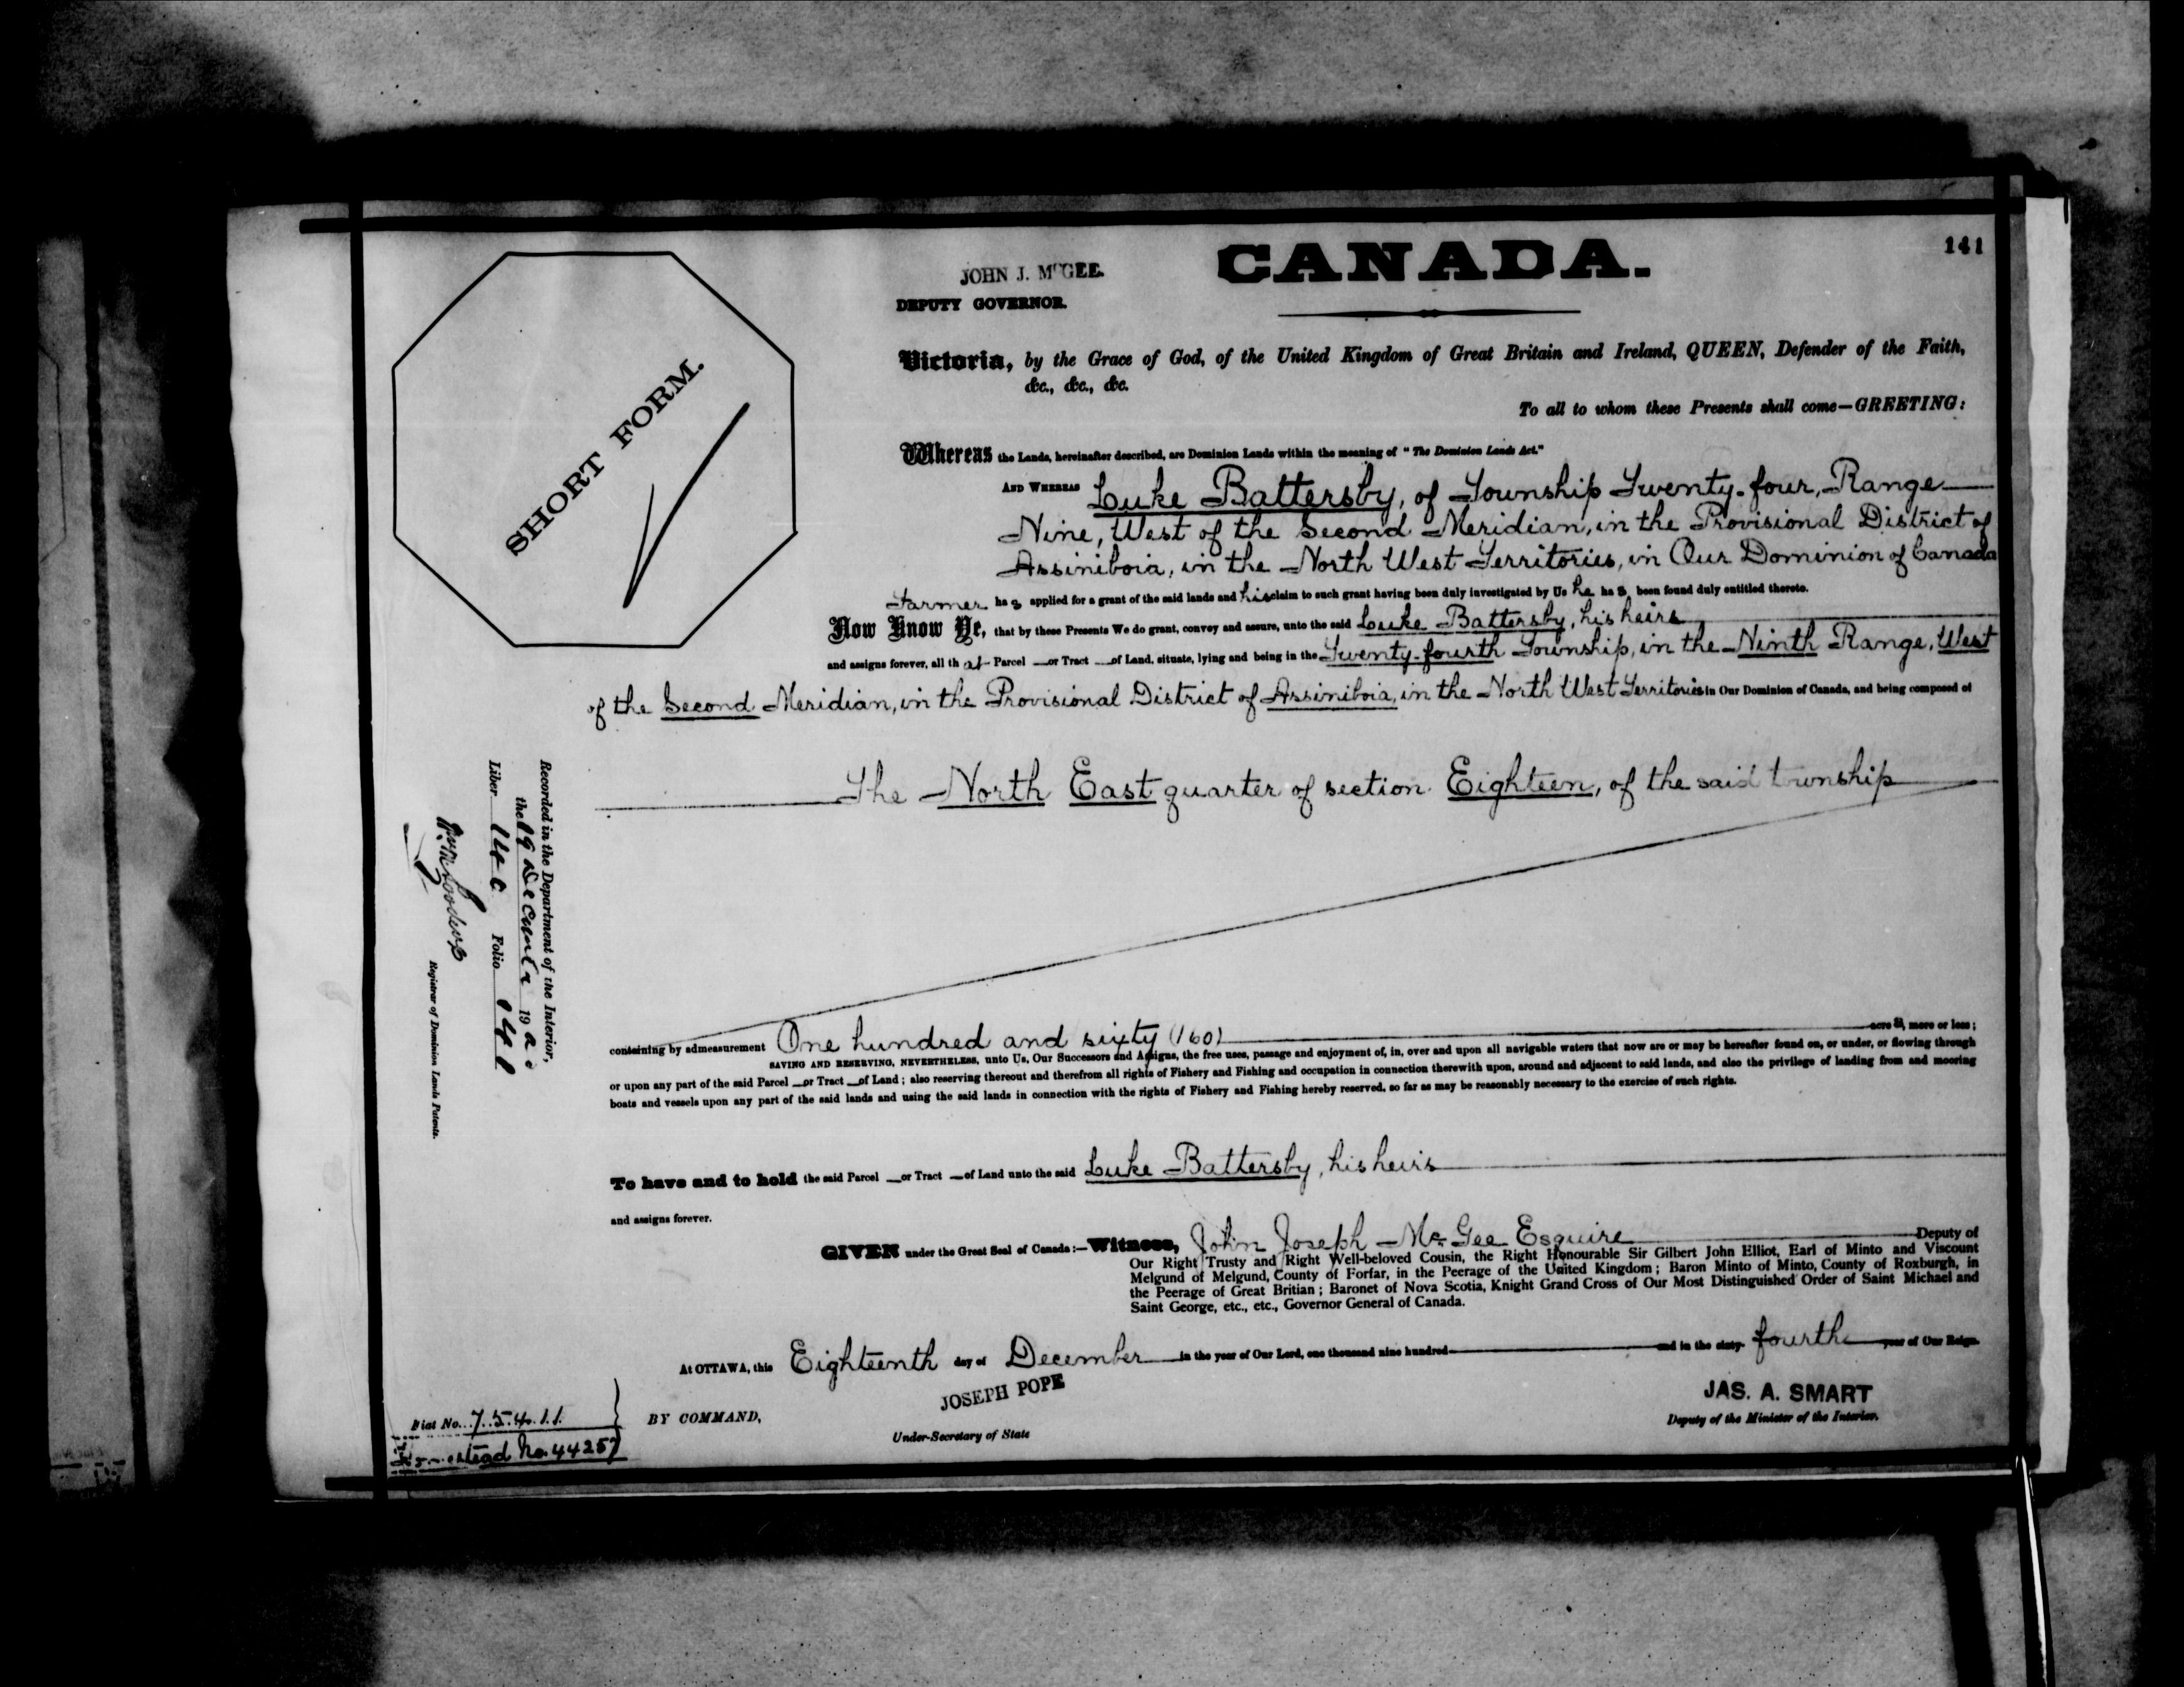 141
JOHN J. McGEE.
DEPUTY GOVERNOR.
CANADA.
SHORT FORM.
Victoria, by the Grace of God, of the United Kingdom of Great Britain and Ireland, QUEEN, Defender of the Faith,
&c., &c., &c.
To all to whom these Presents shall come—GREETING:
Whereas the Lands, hereinafter described, are Dominion Lands within the meaning of "The Dominion Lands Act."
AND WHEREAS Luke Battersby, of Township Twenty-four, Range
Nine, West of the Second Meridian, in the Provisional District of
Assiniboia, in the North West Territories, in Our Dominion of Canada
Farmer has applied for a grant of the said lands and his claim to such grant having been duly investigated by Us he has been found duly entitled thereto.
Now Know Ye, that by these Presents We do grant, convey and assure, unto the said Luke Battersby, his heirs
and assigns forever, all that Parcel or Tract of Land, situate, lying and being in the Twenty-fourth Township, in the Ninth Range, West
of the Second Meridian, in the Provisional District of Assiniboia, in the North West Territories in Our Dominion of Canada, and being composed of
The North East quarter of section Eighteen, of the said township
containing by admeasurement One hundred and sixty (160) acres, more or less;
SAVING AND RESERVING, NEVERTHELESS, unto Us, Our Successors and Assigns, the free uses, passage and enjoyment of, in, over and upon all navigable waters that now are or may be hereafter found on, or under, or flowing through
or upon any part of the said Parcel or Tract of Land; also reserving thereout and therefrom all rights of Fishery and Fishing and occupation in connection therewith upon, around and adjacent to said lands, and also the privilege of landing from and mooring
boats and vessels upon any part of the said lands and using the said lands in connection with the rights of Fishery and Fishing hereby reserved, so far as may be reasonably necessary to the exercise of such rights.
To have and to hold the said Parcel or Tract of Land unto the said Luke Battersby, his heirs
and assigns forever.
GIVEN under the Great Seal of Canada:—Witness, John Joseph McGee Esquire Deputy of
Our Right Trusty and Right Well-beloved Cousin, the Right Honourable Sir Gilbert John Elliot, Earl of Minto and Viscount
Melgund of Melgund, County of Forfar, in the Peerage of the United Kingdom; Baron Minto of Minto, County of Roxburgh, in
the Peerage of Great Britian; Baronet of Nova Scotia, Knight Grand Cross of Our Most Distinguished Order of Saint Michael and
Saint George, etc., etc., Governor General of Canada.
At OTTAWA, this Eighteenth day of December in the year of Our Lord, one thousand nine hundred and in the sixty-fourth year of Our Reign.
BY COMMAND,
JOSEPH POPE
Under-Secretary of State
JAS. A. SMART
Deputy of the Minister of the Interior.
Fiat No. 75411
Homestead No. 44257
Recorded in the Department of the Interior,
the 19 December 1900
Liber 140 Folio 141
Registrar of Dominion Lands Patents.